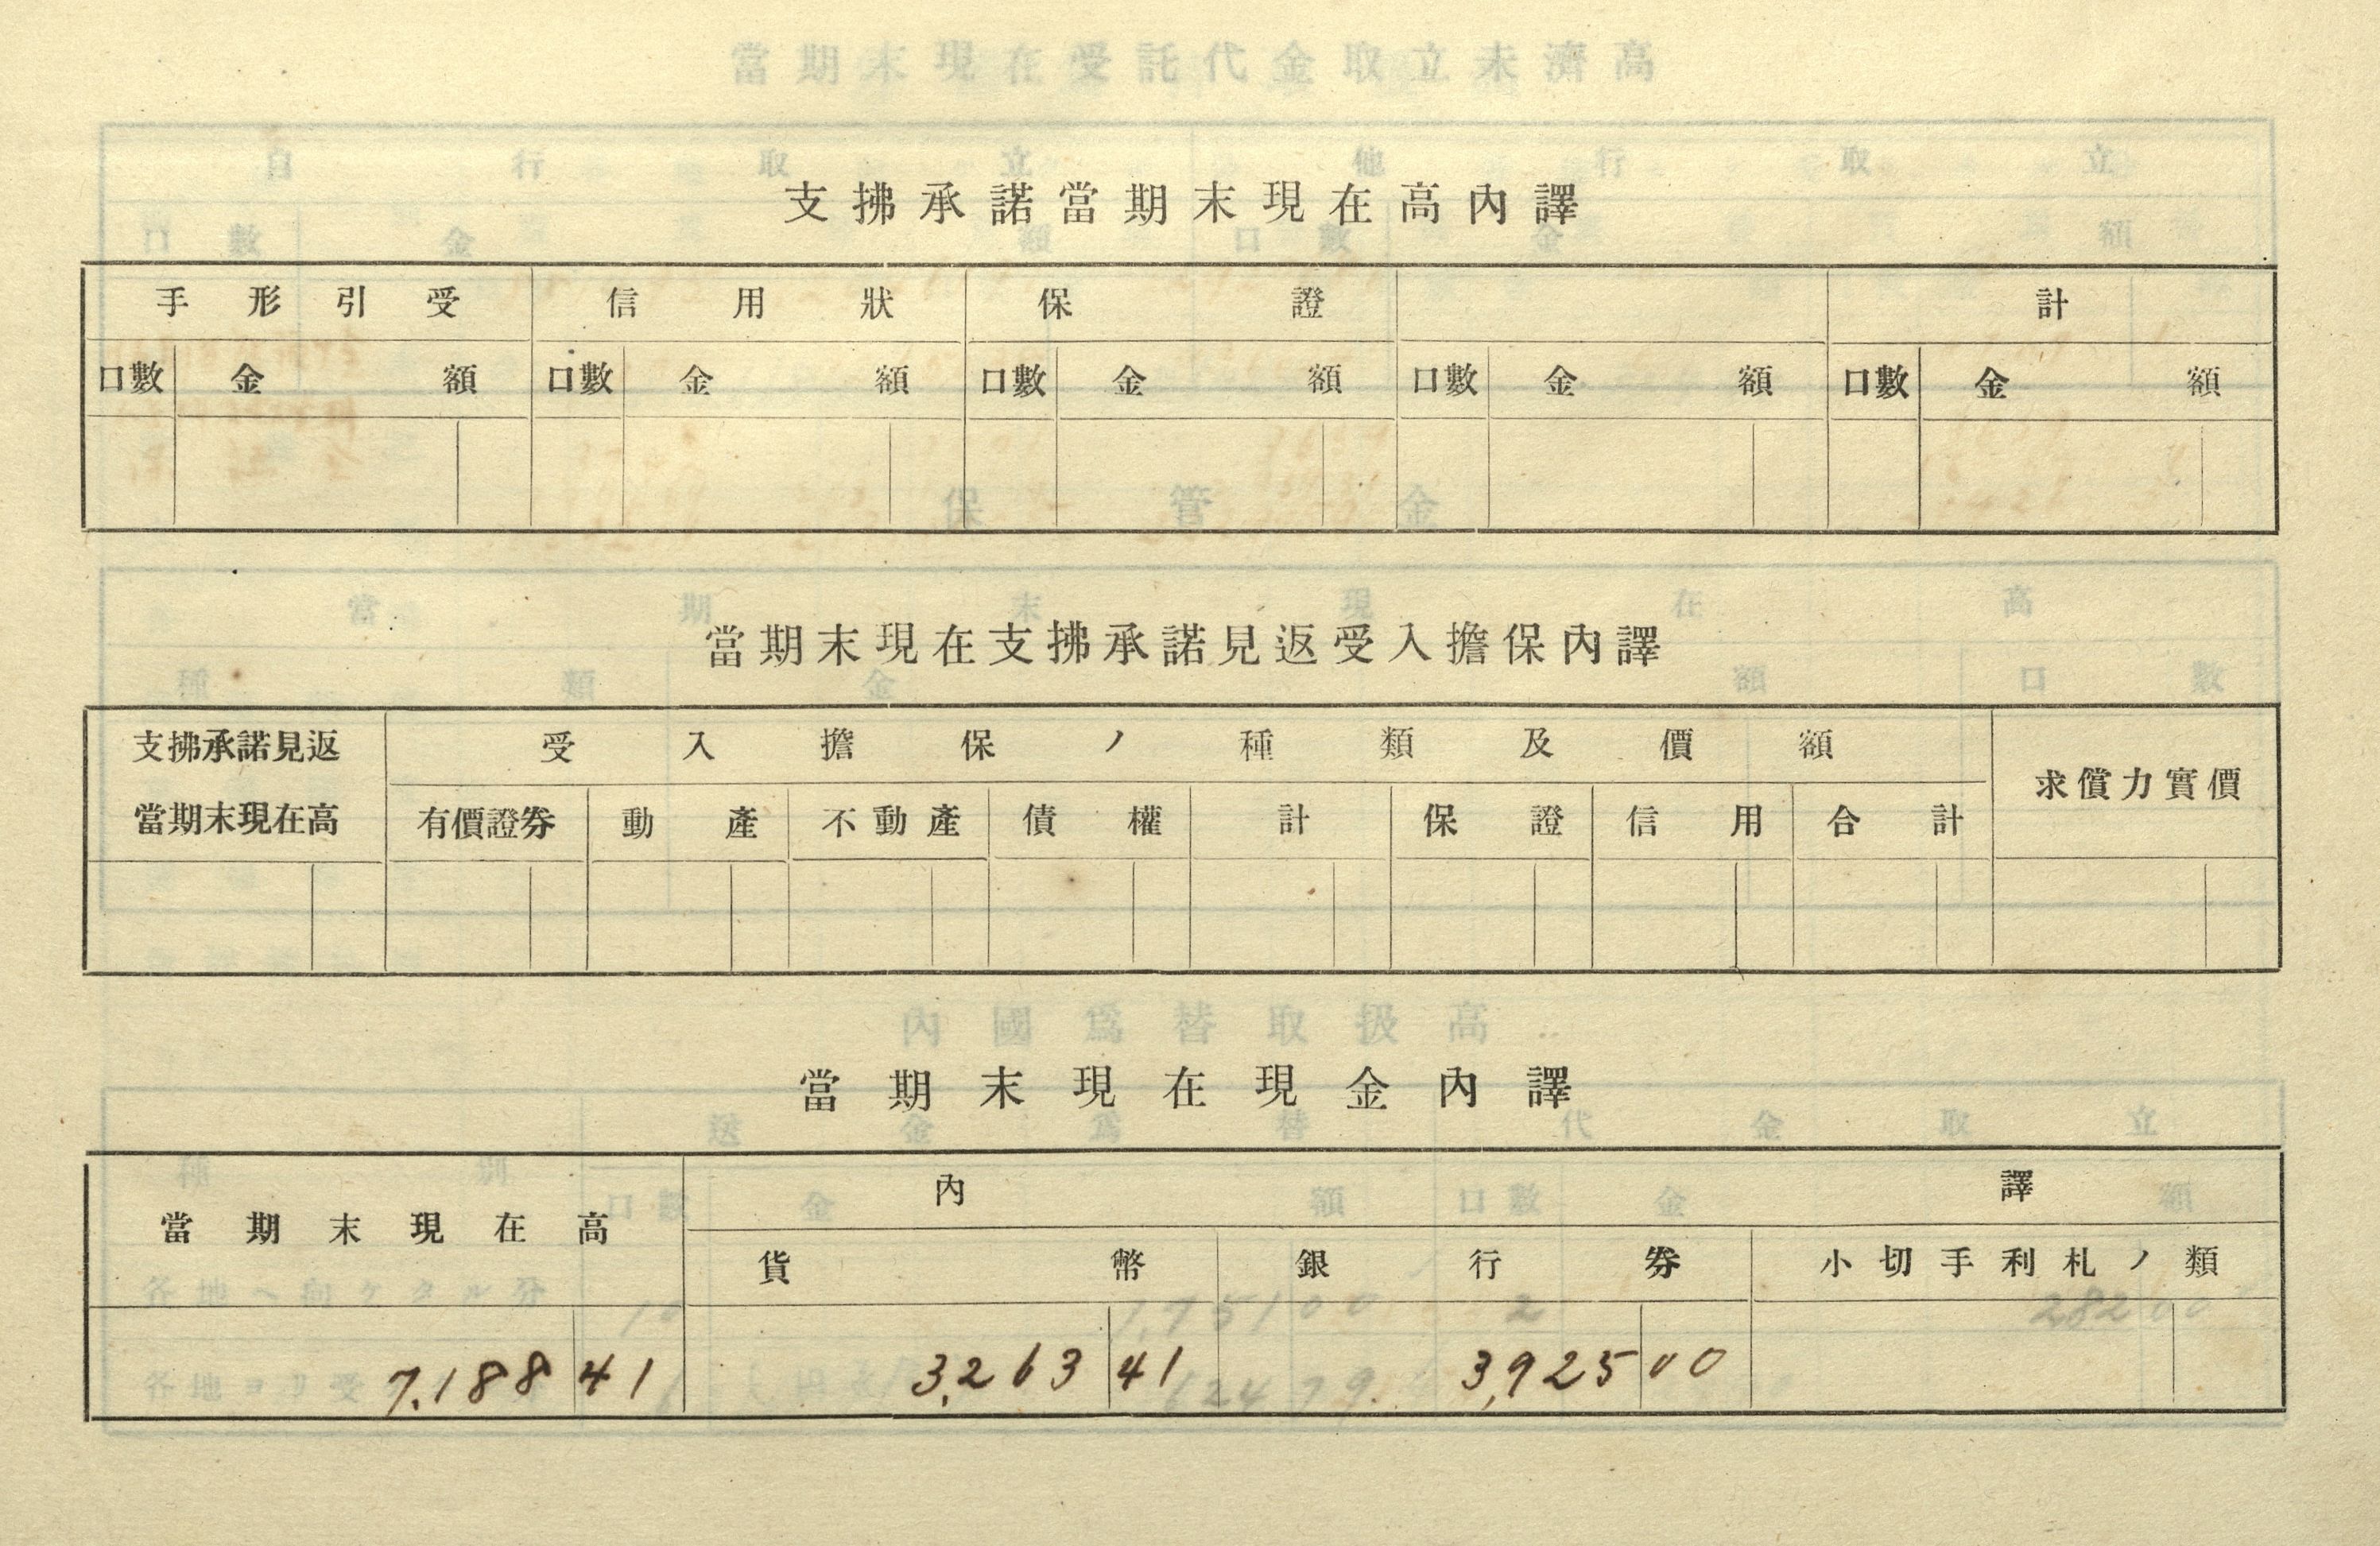 支拂承諾當期末現在高內譯
手形引受 信用狀 保證 計
口數 金額 口數 金額 口數 金額 口數 金額 口數 金額
當期末現在支拂承諾見返受入擔保內譯
支拂承諾見返 受入擔保ノ種類及價額 求償力實價
當期末現在高 有價證券 動產 不動產 債權 計 保證 信用 合計
當期末現在現金內譯
當期末現在高 內譯
貨幣 銀行券 小切手利札ノ類
7,188 41 3,263 41 3,925 00